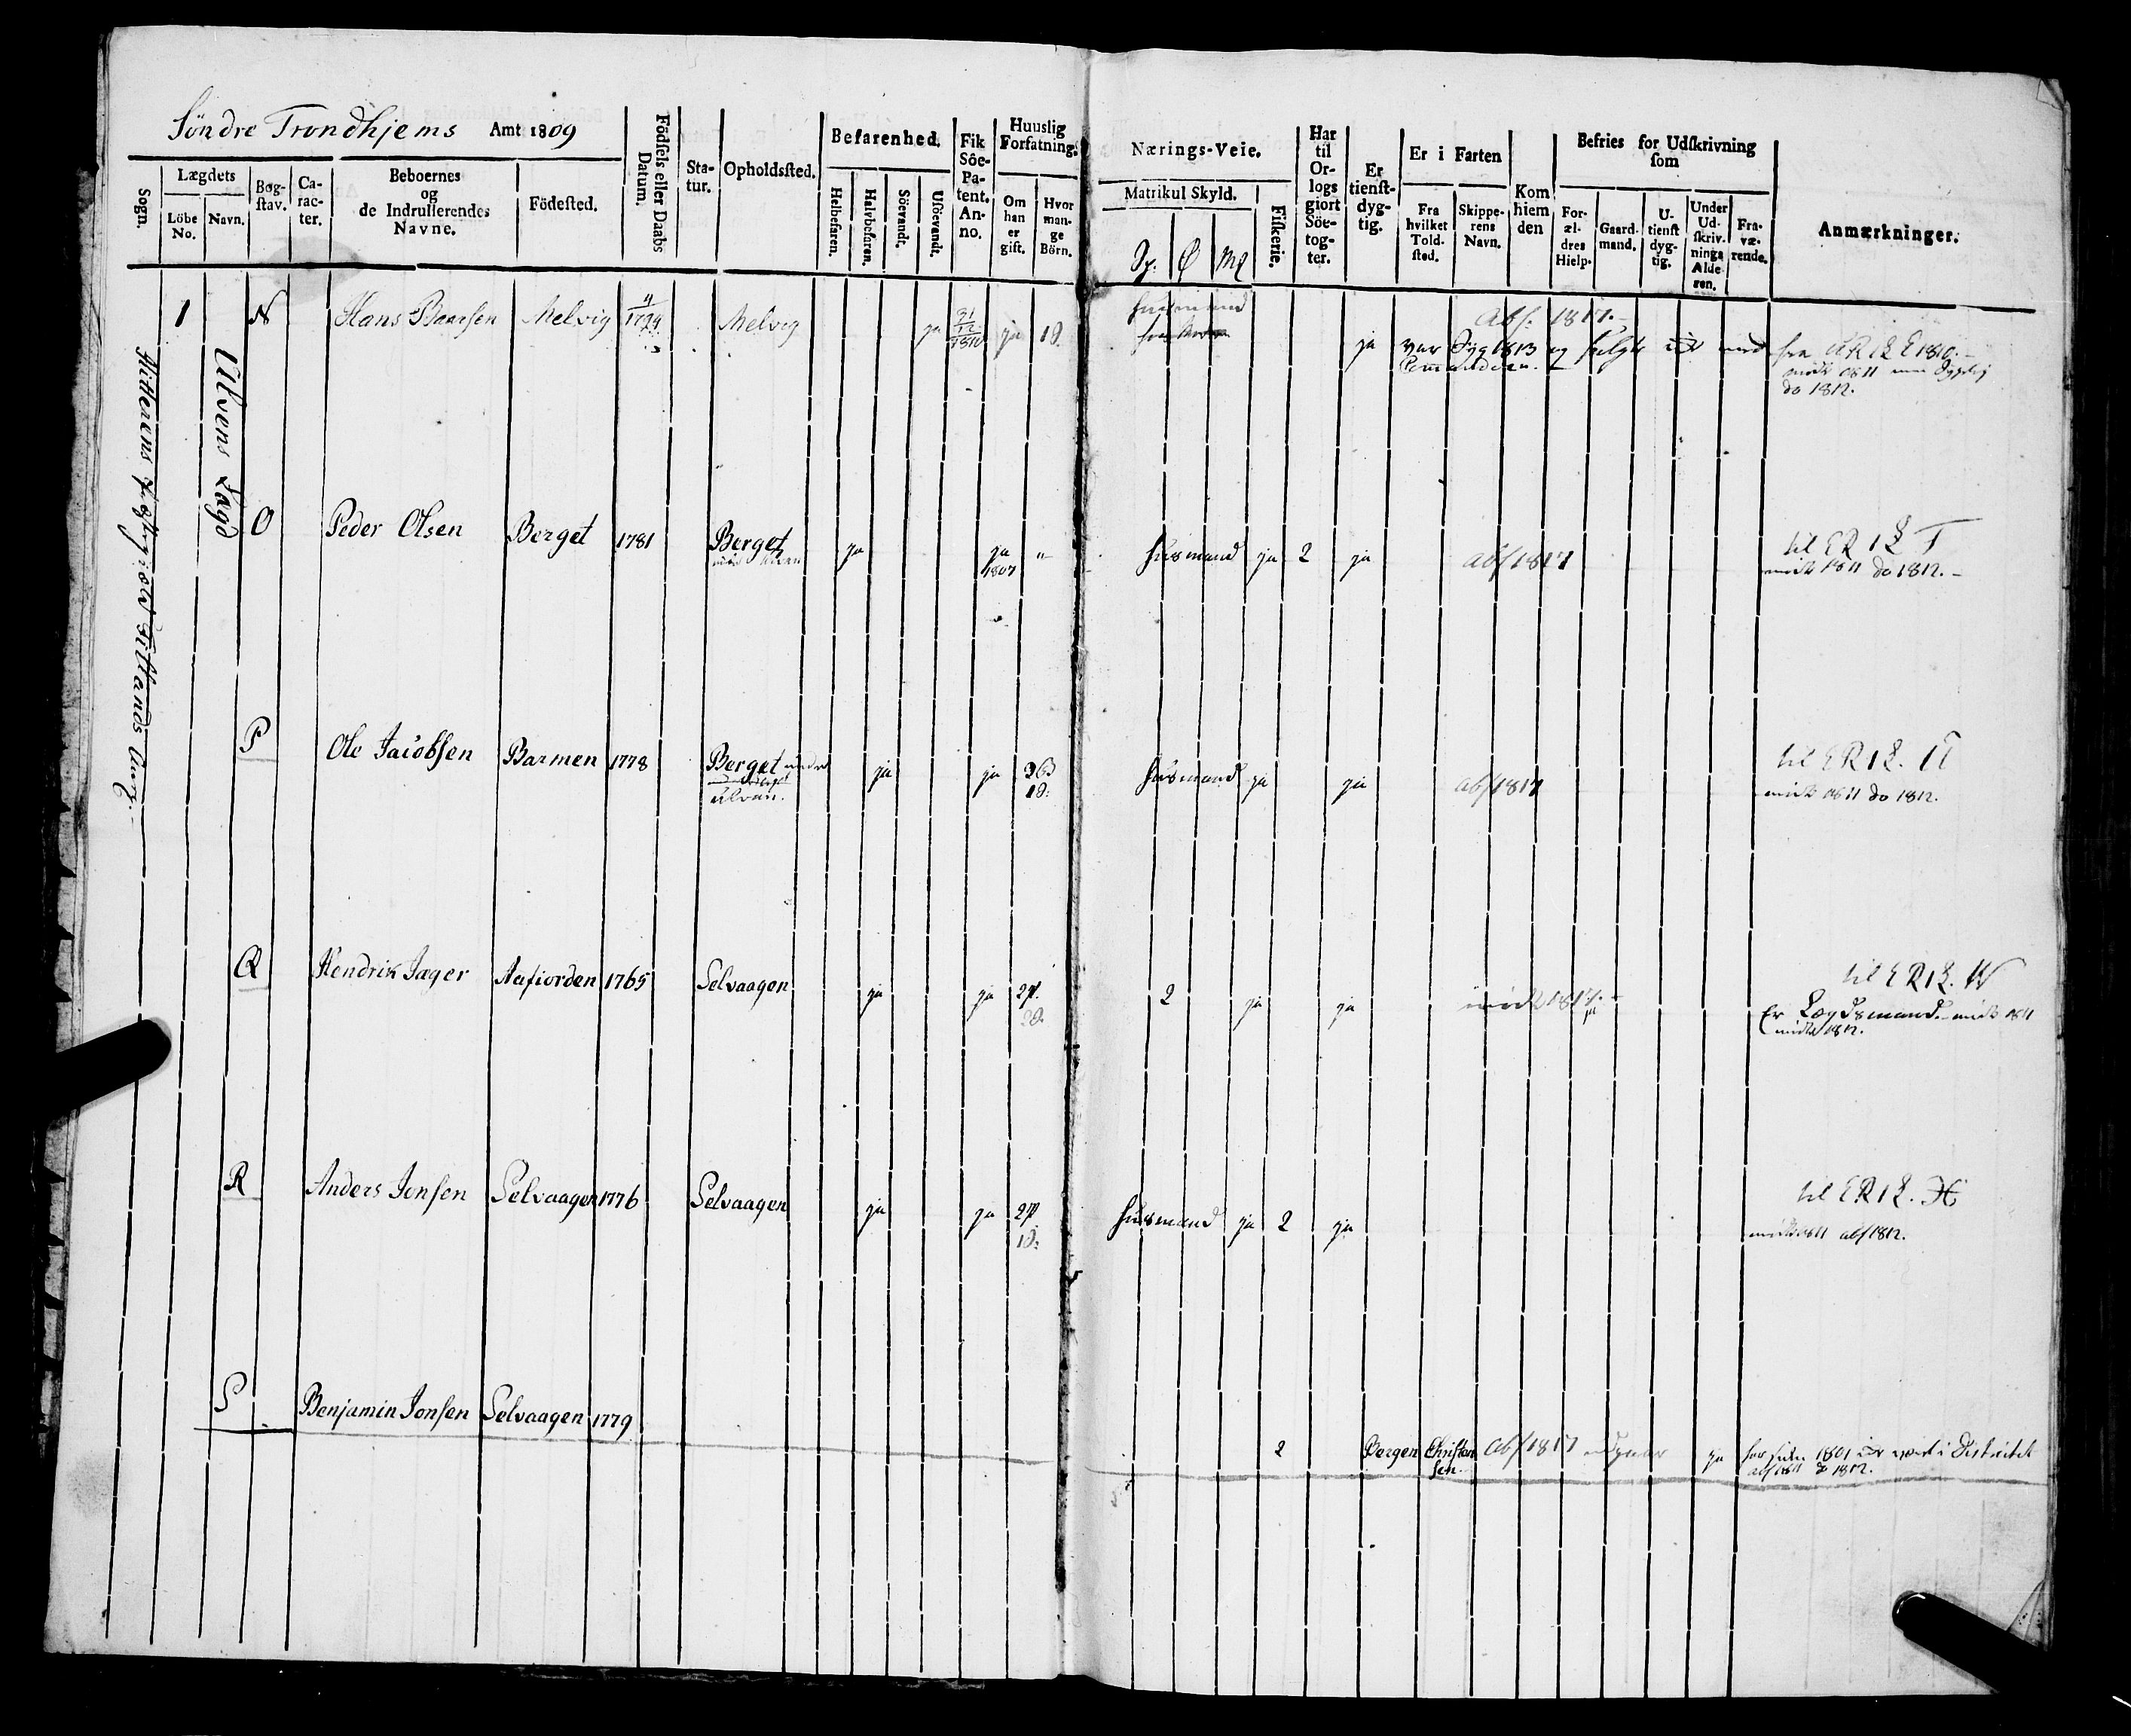 Söndre Trondhjems Amt 1809
Sogn.
Lægdets
Löbe No.
Navn.
Bogstav.
Caracter.
Beboernes
og
de Indrullerendes
Navne.
Födested.
Födsels eller Daabs
Datum.
Statur.
Opholdssted.
Befarenhed.
Helbefaren.
Halvbefaren.
Söevandt.
Usöevandt.
Fik
Söe-
Pa-
tent.
An-
no.
Huuslig
Forfatning.
Om
han
er
gift.
Hvor
man-
ge
Börn.
Nærings-Veie.
Matrikul Skyld.
Fiskerie.
Har
til
Or-
logs
giort
Söe-
tog-
ter.
Er
tienst-
dyg-
tig.
Er i Farten
Fra
hvilket
Told-
sted.
Skippe-
rens
Navn.
Kom
hiem
den
Befries for Udskrivning
som
For-
æl-
dres
Hielp.
Gaard-
mand.
U-
tienst
dyg-
tig.
Under
Ud-
skriv-
nings
Alde-
ren.
Fra-
væ-
rende.
Anmærkninger.
Ulvens Lægd
1 N Hans Melvig Melvig ja 31/12 1810 ja 1 D. ja
husmand
Abs. 1817.
var Dyg 1813 og
fra 1810.
do 1812.
O Peder Olsen Berget 1781 Berget ja ja 1807 husmand ja 2 ja abs 1817 til ER 1 L T
do 1812.
P Ole Jacobsen Barmen 1778 Berget ja ja husmand ja ja abs 1817 til ER 1 L. U
ulven.
do 1812.
Q Hendrik Jæger Aafiorden 1765 Selvaagen ja ja 2 ja ja 1817. til ER 1 L. W
Er Lægdsmand.
R Anders Jonsen Selvaagen 1776 Selvaagen ja ja husmand ja 2 ja til ER 1 L.
abs 1812.
S Benjamin Jonsen Selvaagen 1779 2 Bergen Christen-
sen. abs 1817 ja har siden 1801 ei været i Districtet
abs 1811 & 1812.